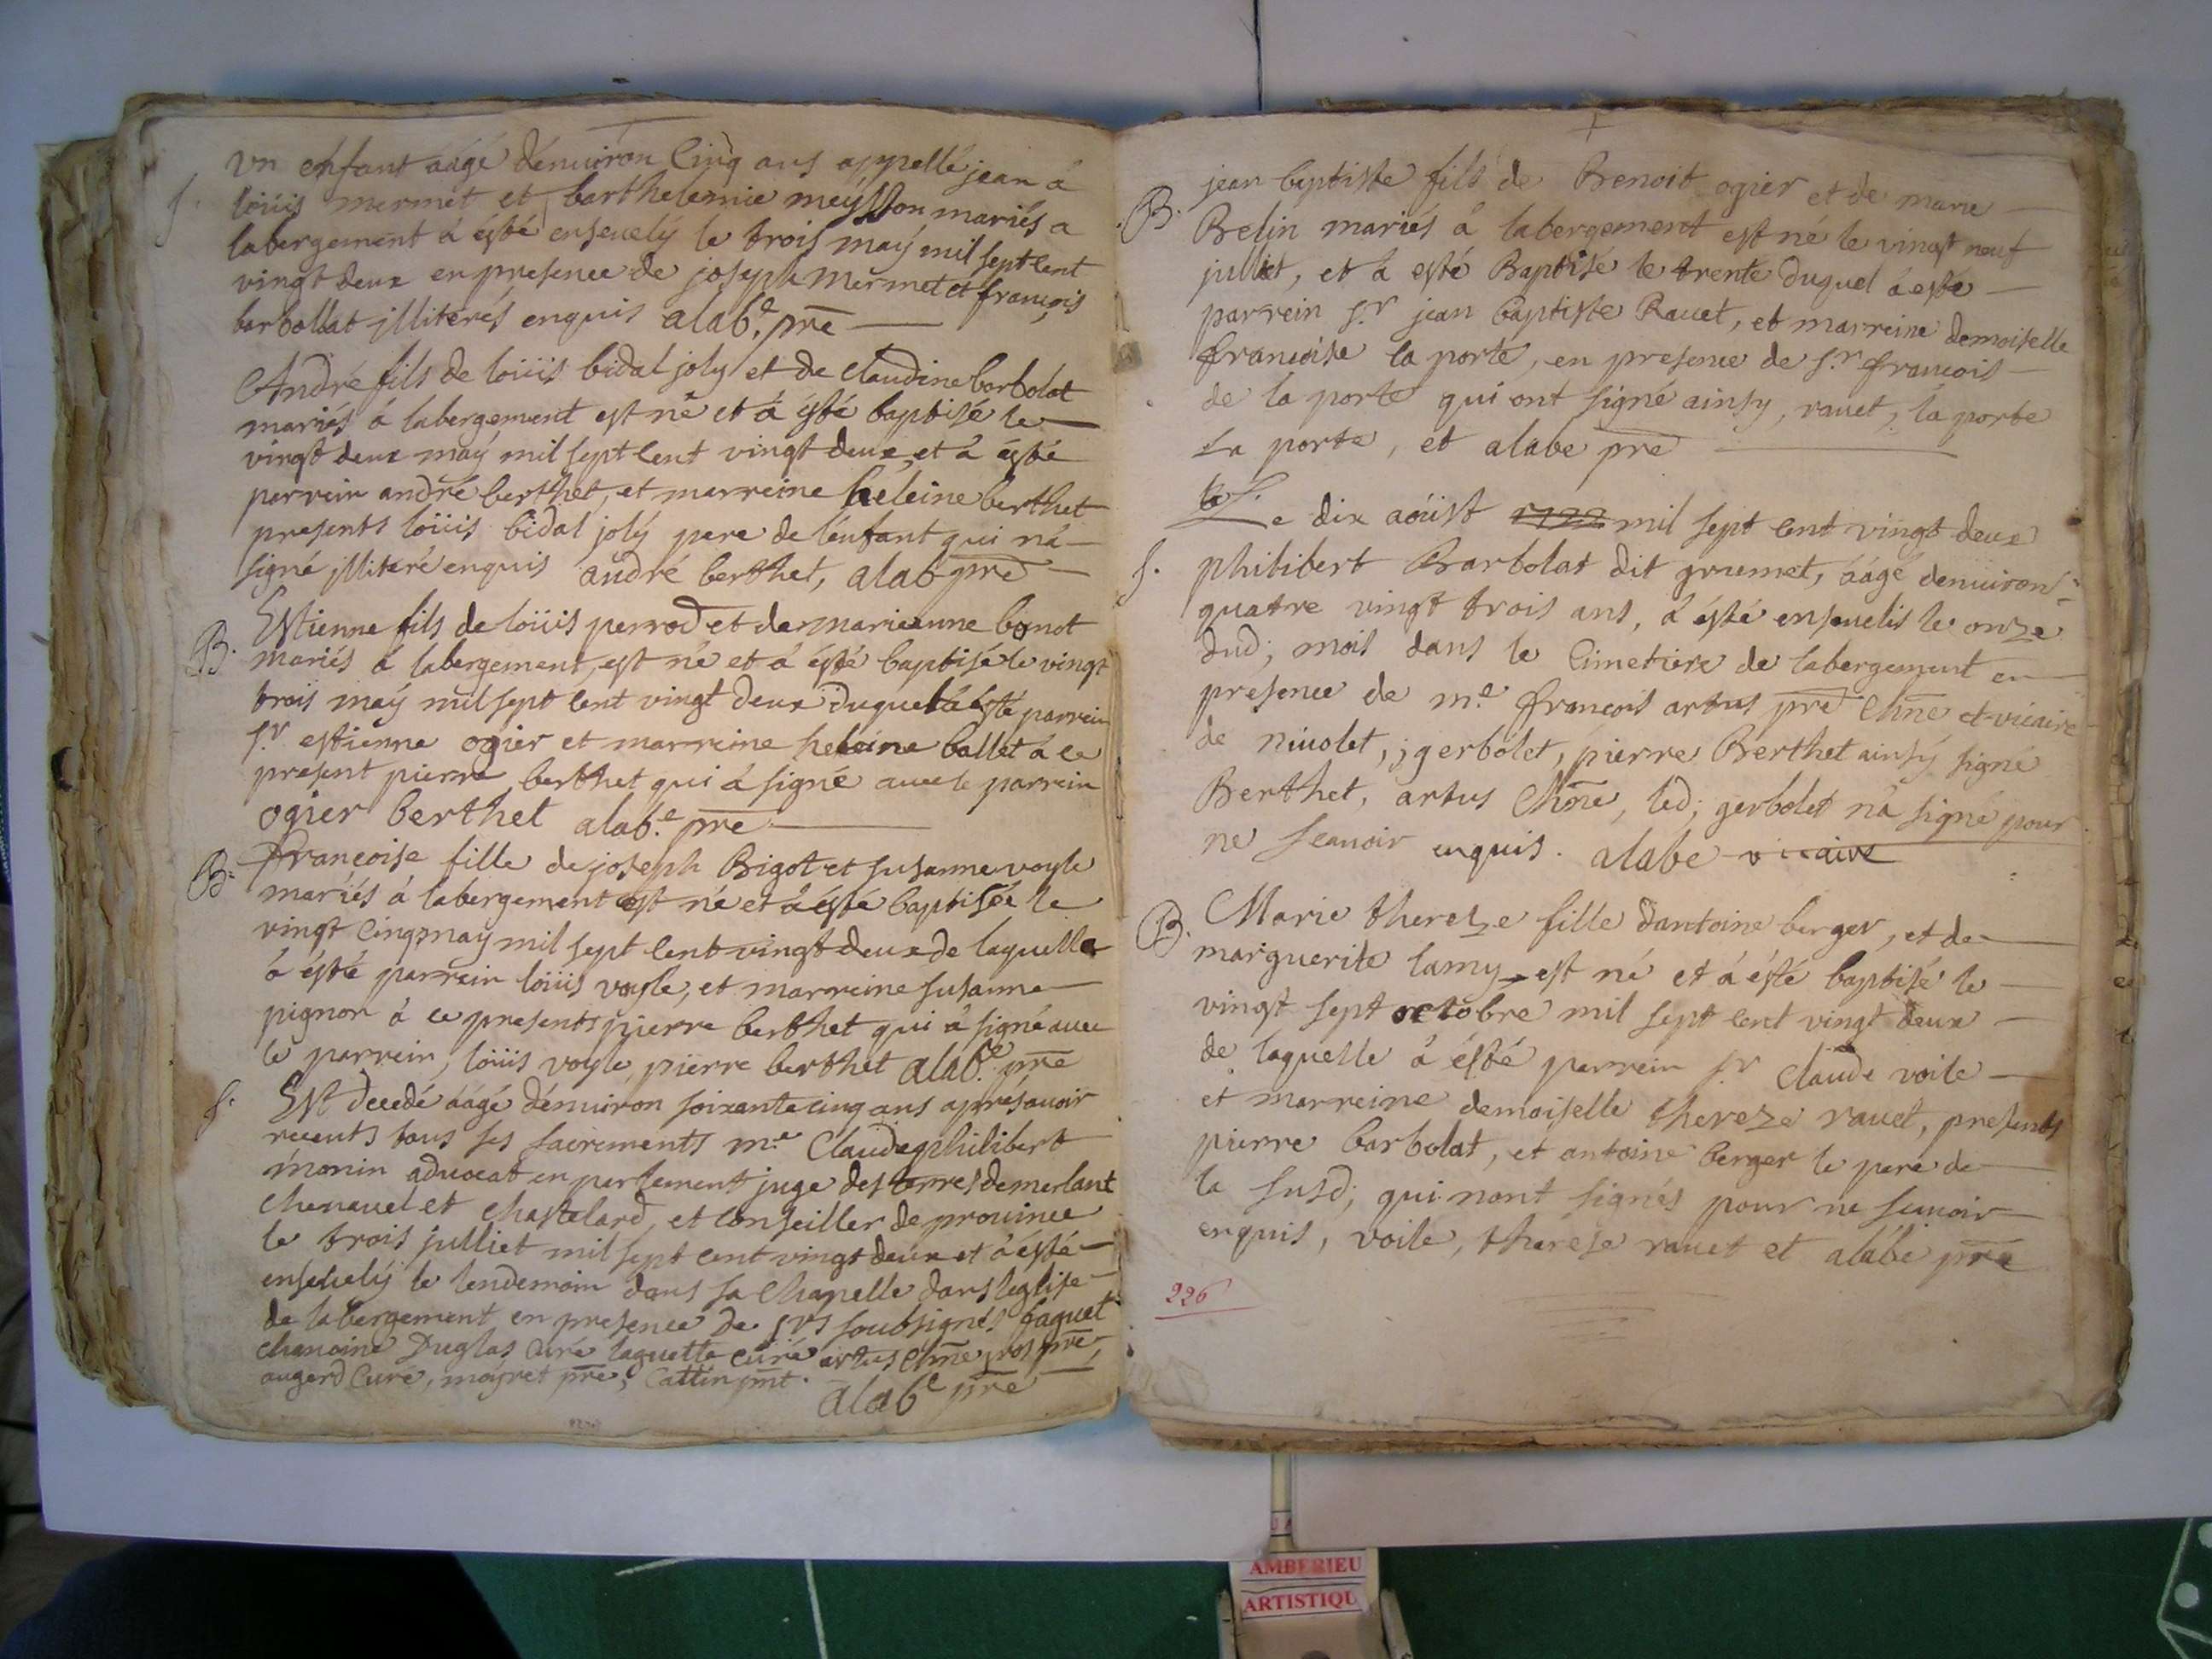 vn enfant aâgé dénuiron Cinq ans appellé jean á
s. loüis mermet et barthelemie meysson mariés a
labergement á ésté enseuely le trois maÿ mil sept Cent
vingt deux en presence de joseph mermet et françois
barbollat jlliterés enquis alab.e pre
André fils de loüis bidal joly et de Claudine barbolat
mariés á labergement est né et á ésté baptisé le
vingt deux maÿ mil sept Cent vingt deux et á ésté
parrein andré berthet, et marreine heleine berthet
presents loüis bidal jolÿ pere de lénfant qui ná
signé jlliteré enquis andré berthet, alab pre
Estienne fils de loüis perrod et de marieanne bonot
B. mariés á labergement, est né et á ésté baptisé le vingt
trois maÿ mil sept Cent vingt deux duquel á ésté parrein
s.r estienne ogier et marreine heleine ballet á ce
present pierre berthet qui á signé auec le parrein
ogier berthet alab.e pre
B. Françoise fille de joseph Bigot et susanne voyle
mariés á labergement est né et á ésté baptisée le
vingt Cinq maÿ mil sept Cent vingt deux de laquelle
á ésté parrein loüis voyle, et marreine susanne
pignon á ce presents pierre berthet qui á signé auec
le parrein, loüis voyle, pierre berthet alab.e pre
s. Est decedé aâgé dénuiron soixante cinq ans aprés auoir
receuts tous ses sacrements m.e Claude philibert
monin aduocat en parlement juge des terres demerlant
Chenauel et Chastelard, et Conseiller de prouince
le trois julliet mil sept Cent vingt deux et á ésté
enseuelÿ le lendemain dans sa Chapelle dans leglise
de labergement en presence de srs soubsignés faguet
chanoine Duglas Curé laguette Curé artus Chne pre,
augerd Curé, mayret pre, Cattin pnt.
alab.e pre
jean baptiste fils de Benoit ogier et de marie
B. Belin mariés á labergement est né le vingt neuf
julliet, et á esté Baptisé le trente duquel á esté
parrein s.r jean baptiste Rauet, et marreine demoiselle
françoise la porte, en presence de s.r françois
de la porte qui ont signé ainsy, rauet, la porte
La porte, et alabe pre
Le dix aoúst 1722 mil sept Cent vingt deux
s. philibert Barbolat dit grumet, aâgé denuiron
quatre vingt trois ans, á ésté enseuelis le onze
dud; mois dans le Cimetiere de labergement en
presence de m.e françois artus pre Chne et vicaire
de niuolet, j gerbolet, pierre Berthet ainsÿ signé
Berthet, artus Chne, led; gerbolet ná signé pour
ne sçauoir enquis. alabe vicaire
B. Marie thereze fille dantoine berger, et de
marguerite lamy est né et á ésté baptisé le
vingt sept octobre mil sept Cent vingt deux
de laquelle á ésté parrein s.r Claude voile
et marreine demoiselle thereze rauet, presents
pierre barbolat, et antoine berger le pere de
la susd; qui nont signés pour ne scauoir
enquis, voile, therese rauet et alabe pre
226
AMBERIEU
ARTISTIQU